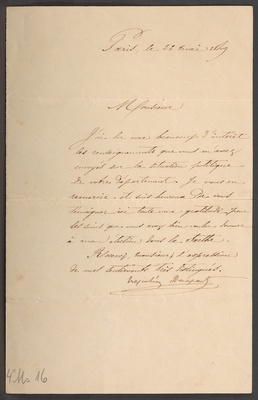 Paris, le 22 mai 1849
Monsieur,
J'ai lu avec beaucoup d'intérêt
les renseignements que vous m'avez
envoyés sur la situation politique
de votre département. Je vous en
remercie et suis heureux de vous
témoigner ici toute ma gratitude pour
les soins que vous avez bien voulu donner
à mon élection dans la Sarthe.
Recevez, monsieur, l'expression
de mes sentiments très distingués.
Napoléon Bonaparte
16